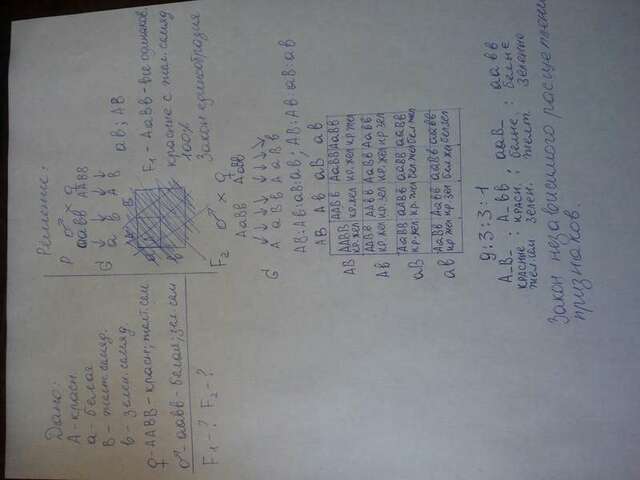 Дано:
А-красн
а-белая
В-желт.семяд.
в-зелен.семяд
♀-ААВВ-красн;желт.сем
♂-аавв-белая;зел.сем
F₁-? F₂-?
Решение:
P ♂ х ♀
аавв ААВВ
G а в А В
ав; АВ
F₁-АаВв-все одинаков.
красные с жел.семяд.
100%
Закон единообразия
F₂ ♂ х ♀
АаВв АаВв
G А а В в А а В в
АВ:Ав:аВ:ав; АВ:Ав:аВ:ав
АВ Ав аВ ав
АВ ААВВ ААВв АаВВ АаВв
кр.жел кр.жел кр.жел кр.жел
Ав ААВв ААвв АаВв Аавв
кр.жел кр.зел кр.жел кр.зел
аВ АаВВ АаВв ааВВ ааВв
кр.жел кр.жел бел.жел бел.жел
ав АаВв Аавв ааВв аавв
кр.жел кр.зел бел.жел бел.зел
9:3:3:1
А_В_ : А_вв : ааВ_ : аавв
красные : красн. : белые : белые
жел.сем зелен. желт. зеленые
Закон независимого расщепления
признаков.